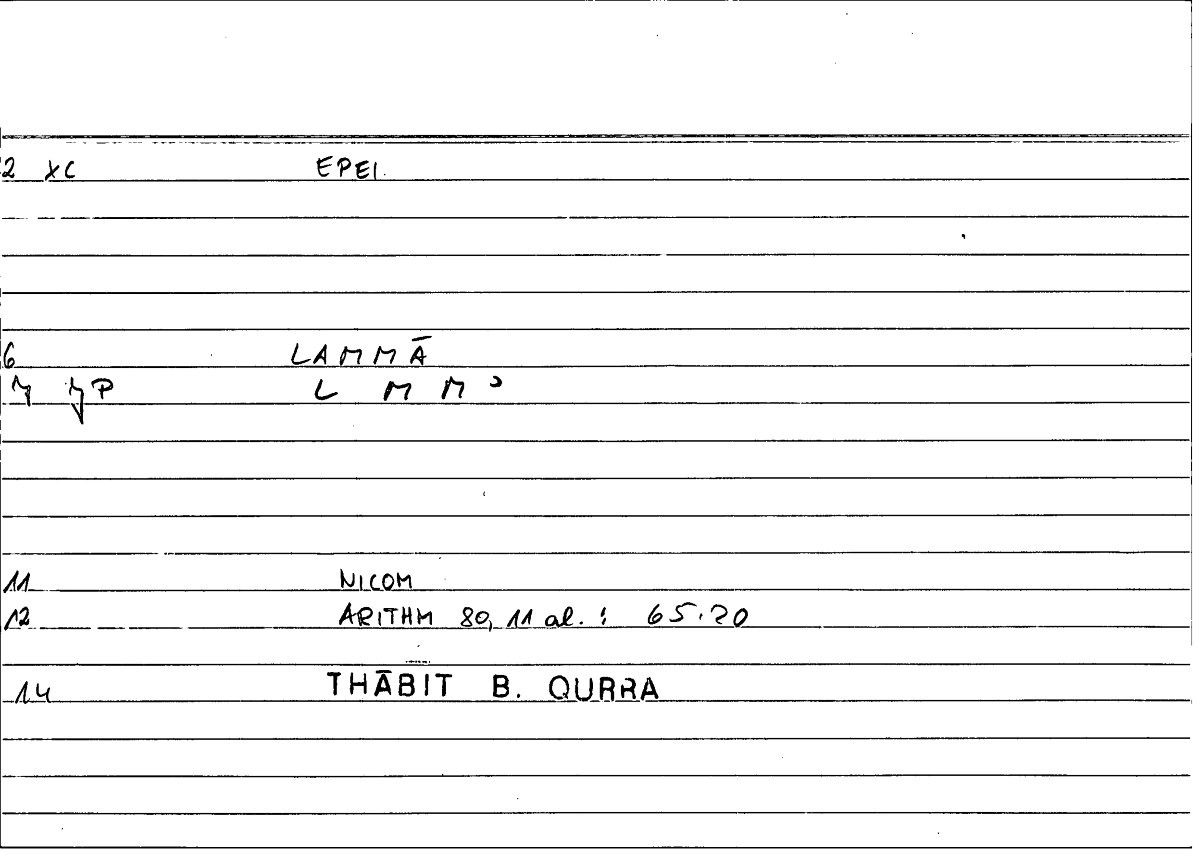 2 XC EPEI.
6 LAMMĀ
L M M ɔ
11 NICOM
12 ARITHM 80, 11 al. : 65.20
14 THĀBIT B. QURRA